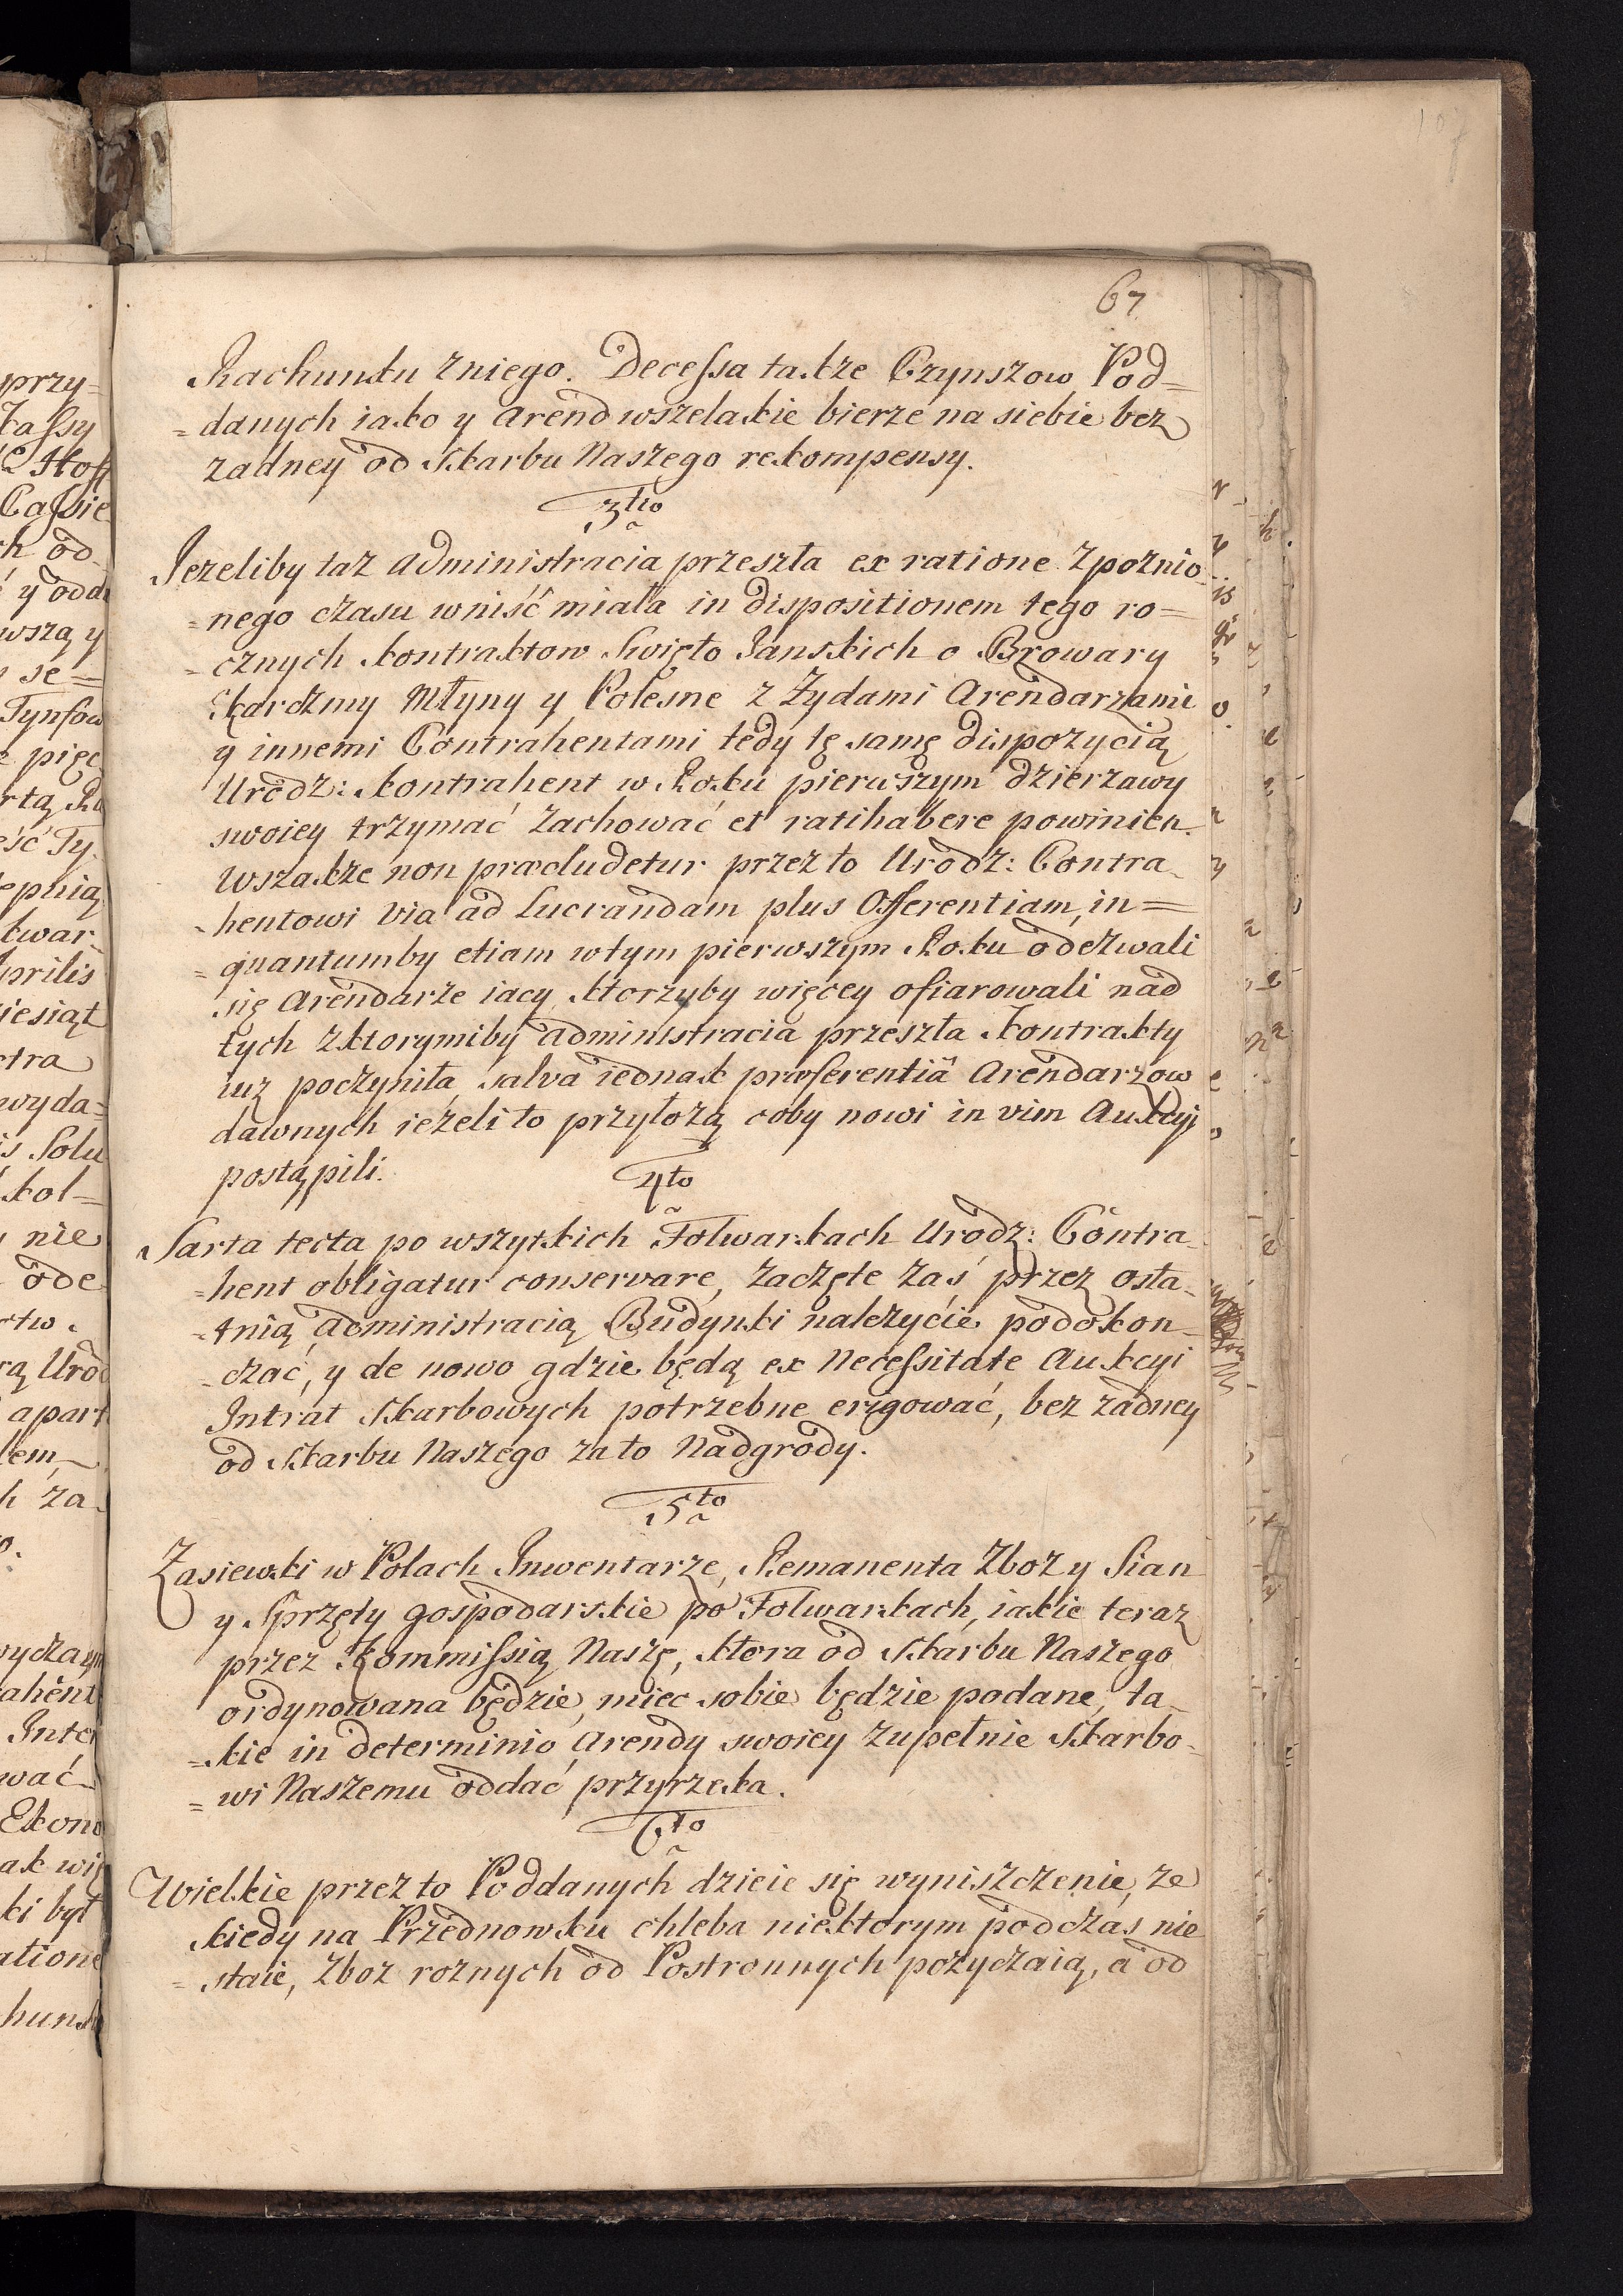 67
Rachunku z niego. Decessa takze Czynszow Pod=
=danych iako y Arend wszelakie bierze na siebie bez
zadney od Skarbu Naszego rekompensy.
3tio
Jezeliby taz Administracia przeszła ex ratione zpoznio
=nego czasu wniść miała in dispositionem tego ro=
=cznych kontraktow Swięto Janskich o Browary
Karczmy Młyny y Polesne z Żydami Arendarzami
y innemi Contrahentami tedy tę samę dispozycią
Urodz: kontrahent w Roku pierwszym dzierzawy
swoiey trzymać zachować et ratihabere powinien.
Wszakze non præcludetur przez to Urodz: Contra-
-hentowi via ad lucrandam plus Offerentiam, in=
=quantumby etiam w tym pierwszym Roku odezwali
się Arendarze iacy ktorzyby więcey ofiarowali nad
tych z ktorymiby Administracia przeszła kontrakty
iuz poczyniła, salva iednak præferentiâ Arendarzow
dawnych iezeli to przyłozą coby nowi in vim Aukcyi
postąpili.
4to
Sarta tecta po wszytkich Folwarkach Urodz: Contra-
=hent obligatur conservare, zaczęte zaś przez osta-
-tnią Administracią Budynki nalezycie podokon-
-czać, y de nowo gdzie będą ex Necessitate Aukcyi
Intrat Skarbowych potrzebne erigować, bez zadney
od Skarbu Naszego za to Nadgrody.
5to
Zasiewki w Polach Inwentarze, Remanenta Zboz y Sian
y Sprzęty gospodarskie po Folwarkach, iakie teraz
przez Kommissią Naszę, ktora od Skarbu Naszego
ordynowana będzie, miec sobie będzie podane, ta-
=kie in determinio Arendy swoiey zupełnie Skarbo-
=wi Naszemu oddać przyrzeka.
6to
Wielkie przez to Poddanych dzieie się wyniszczenie, ze
kiedy na Przednowku chleba niektorym podczas nie
=staie, Zboz roznych od Postronnych pozyczaią, a od